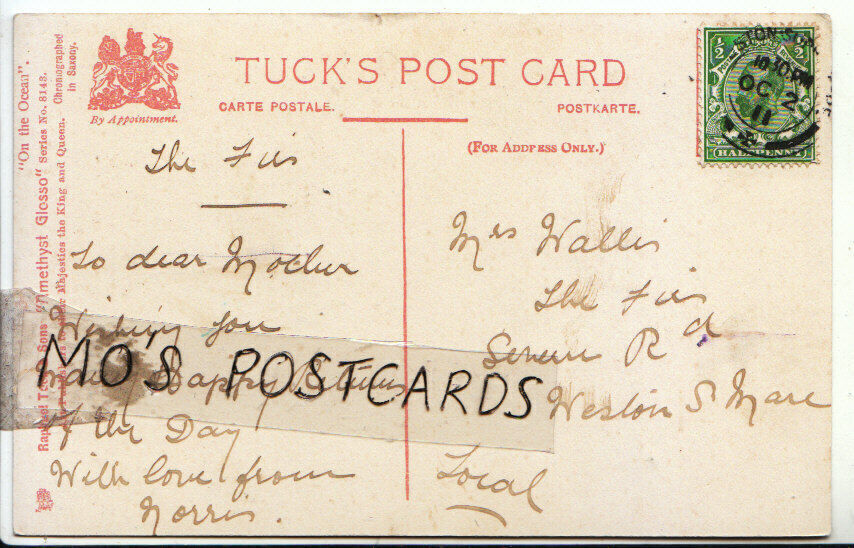 "On the Ocean".
Raphael Tuck & Sons "Amethyst Glosso" Series No. 8143.
Majesties the King and Queen. Chromographed
in Saxony.
By Appointment.
TUCK'S POST CARD
CARTE POSTALE.
POSTKARTE.
(FOR ADDRESS ONLY.)
The Firs
To dear Mother
Wishing you
many Happy Returns
of the Day
With love from
Norris.
MOS POSTCARDS
Mrs Wallis
The Firs
Severn Rd
Weston S Mare
Local
1/2 1/2
HALFPENNY
OC 2
11